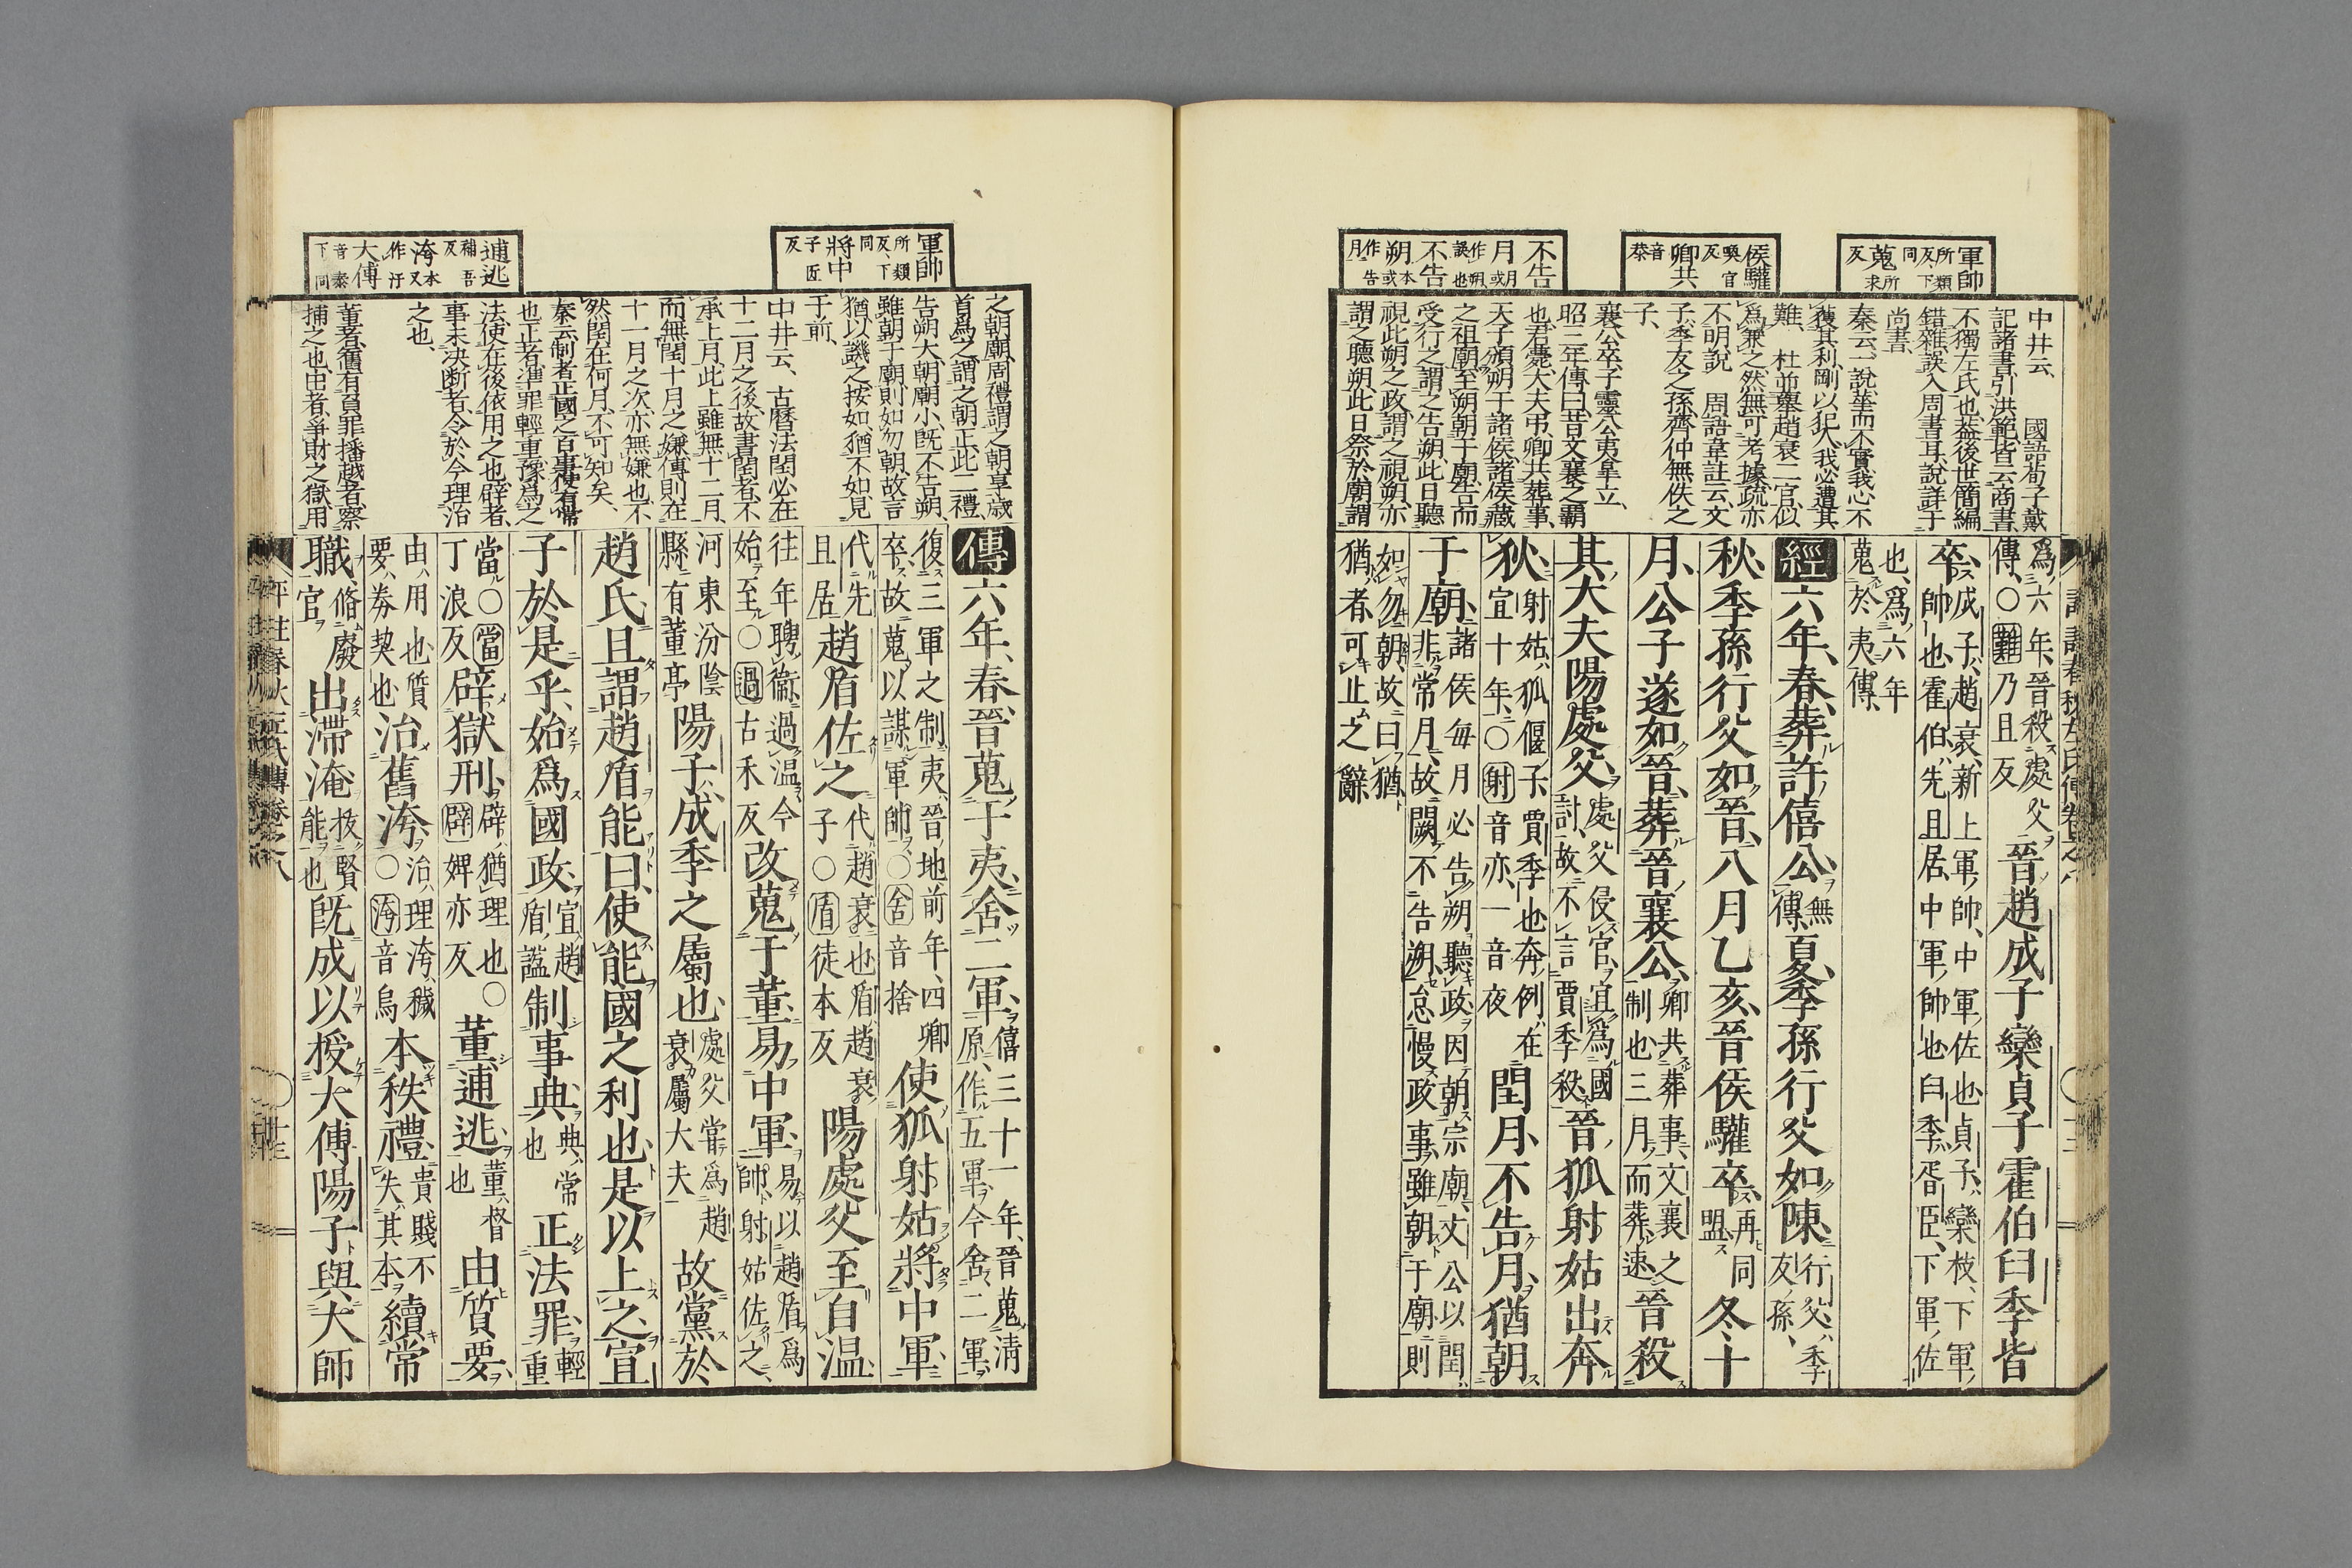 軍帥
所類反下同
蒐
所求反
侯驩
喚官反
卿共
音恭
不告
月
月或作朔誤也
不告
朔
本或作告月
中井云、國語荀子戴
記諸書引洪範皆云商書、
不獨左氏也、蓋後世簡編
錯雜誤入周書耳、說詳于
尚書、
秦云、一說、華而不實、我心不
獲其利、剛以犯人、我必遭其
難、杜並擧趙衰二官、似
爲兼之、然無可考據、疏亦
不明說 周語韋註云、文
子、季友之孫、齊仲無佚之
子、
襄公卒、子靈公夷皐立、
昭三年傳曰、昔文襄之霸
也、君薨大夫弔、卿共葬事、
天子頒朔于諸侯、諸侯藏
之祖廟、至朔朝于廟、告而
受行之、謂之告朔、此日聽
視此朔之政、謂之視朔、亦
謂之聽朔、此日祭於廟、謂
爲六年、晉殺處父
傳、○難乃且反
晉趙成子欒貞子霍伯臼季皆
卒、成子、趙衰、新上軍帥、中軍佐也、貞子、欒枝、下軍
帥也、霍伯、先且居、中軍帥也、臼季、胥臣、下軍佐
也、爲六年
蒐於夷傳、
經六年、春、葬許僖公、無傳、夏、季孫行父如陳、行父、季友孫、
秋、季孫行父如晉、八月乙亥、晉侯驩卒、再同盟、冬、十
月、公子遂如晉、葬晉襄公、卿共葬事、文襄之制也、三月而葬、速、晉殺
其大夫陽處父、處父侵官、宜爲國討、故不言賈季殺、晉狐射姑出奔
狄、射姑、狐偃子賈季也、奔例在宣十年、○射音亦、一音夜、閏月、不告月、猶朝
于廟、諸侯每月必告朔聽政、因朝宗廟、文公以閏
非常月、故闕不告朔、怠慢政事、雖朝于廟、則
如勿朝、故曰猶、
猶者、可止之辭
評註春秋左氏傳卷之八
軍帥
所類反、下同
將中
子匠反
逋逃
補吾反
洿
本又作汙
大傅
音泰下同
之朝廟、周禮謂之朝享、歲
首爲之、謂之朝正、此二禮、
告朔大、朝廟小、旣不告朔、
雖朝于廟、則如勿朝、故言
猶以譏之、按如、猶不如見
于前、
中井云、古曆法閏必在
十二月之後、故書閏者、不
承上月、此上雖無十二月、
而無閏十月之嫌、傳則在
十一月之次、亦無嫌也、不
然閏在何月、不可知矣、
秦云、制者正國之百事、使有常
也、正者準罪輕重、豫爲之
法、使在後依用之也、辟者、
事未決斷者、令於今理治
之也、
董者、舊有負罪播越者、察
捕之也、由者、爭財之獄、用
傳六年、春、晉蒐于夷、舍二軍、僖三十一年、晉蒐淸原、作五軍、今舍二軍、
復三軍之制、夷、晉地、前年、四卿
卒、故蒐以謀軍帥、○舍音捨
使狐射姑將中軍、
代先且居
趙盾佐之、代趙衰也、盾、趙衰子○盾徒本反
陽處父至自溫、
往年聘衞過溫、今始至、○過古禾反
改蒐于董、易中軍、易以趙盾爲帥、射姑佐之、
河東汾陰縣有董亭
陽子、成季之屬也、處父嘗爲趙衰屬大夫
故黨於
趙氏、且謂趙盾能、曰、使能國之利也、是以上之、宣
子於是乎、始爲國政、宣趙盾謚、制事典、典、常也
正法罪、輕重
當○當丁浪反
辟獄刑、辟、猶理也○辟婢亦反
董逋逃、董、督也
由質要、
由、用也、質要、券契也
治舊洿、治、理洿、穢○洿音烏
本秩禮、貴賤不失其本
續常
職、脩廢官
出滯淹、拔賢能也
旣成、以授大傅陽子、與大師
評註春秋左氏傳卷之八